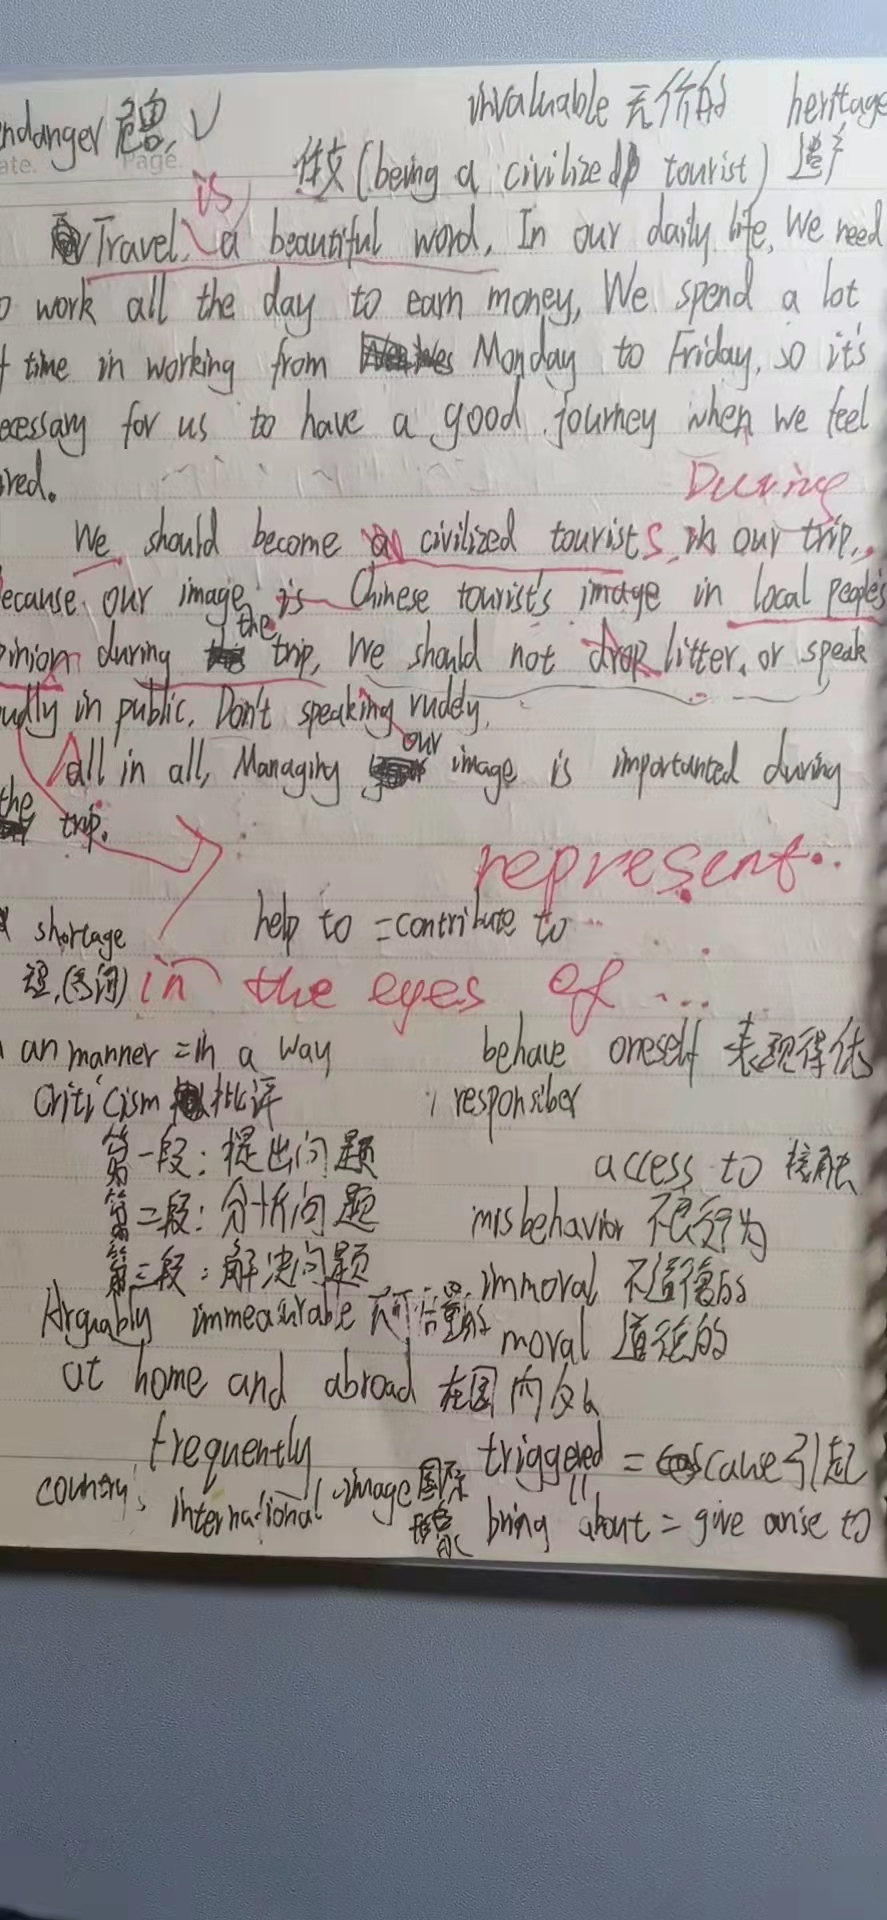 ndanger 危害, V
invaluable 无价的 heritage
ate. Page.
作文 (being a civilized tourist) 遗产
is
Travel a beautiful word, In our daily life, We need
o work all the day to earn money, We spend a lot
f time in working from Monday to Friday, so it's
ecessary for us to have a good journey when we feel
ired.
During
We should become a civilized tourists in our trip,
ecause our image is Chinese tourist's image in local people's
the
pinion during trip, We should not drop litter, or speak
udly in public, Don't speaking rudely,
our
All in all, Managing image is importanted during
the trip.
represent...
shortage help to = contribute to ...
in the eyes of ...
an manner = in a way behave oneself 表现得体
Criticism 批评 responsiber
第一段: 提出问题
access to 接触
第二段: 分析问题 misbehavior 不良行为
第三段: 解决问题 immoral 不道德的
Arguably immeasurable 不可估量的 moral 道德的
at home and abroad 在国内外
frequently triggered = cause 引起
country's international image 国际形象
bring about = give arise to